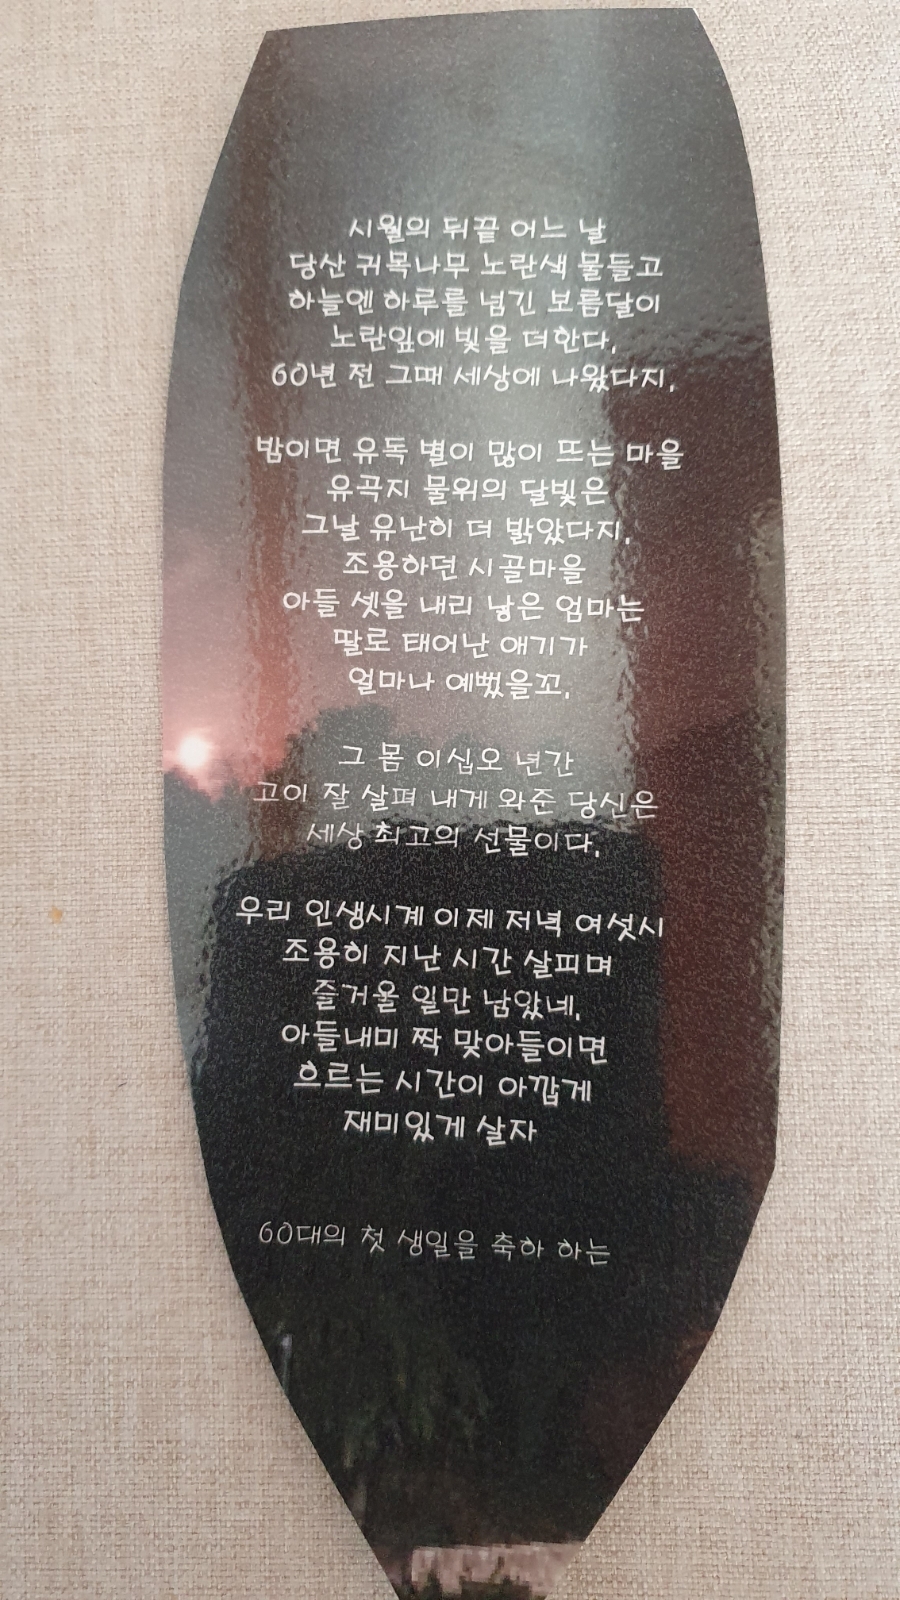 시월의 뒤끝 어느 날
당산 귀목나무 노란색 물들고
하늘엔 하루를 넘긴 보름달이
노란잎에 빛을 더한다.
60년 전 그때 세상에 나왔다지.
밤이면 유독 별이 많이 뜨는 마을
유곡지 물위의 달빛은
그날 유난히 더 밝았다지.
조용하던 시골마을
아들 셋을 내리 낳은 엄마는
딸로 태어난 애기가
얼마나 예뻤을꼬.
그 몸 이십오 년간
고이 잘 살펴 내게 와준 당신은
세상 최고의 선물이다.
우리 인생시계 이제 저녁 여섯시
조용히 지난 시간 살피며
즐거울 일만 남았네.
아들내미 짝 맞아들이면
흐르는 시간이 아깝게
재미있게 살자
60대의 첫 생일을 축하 하는